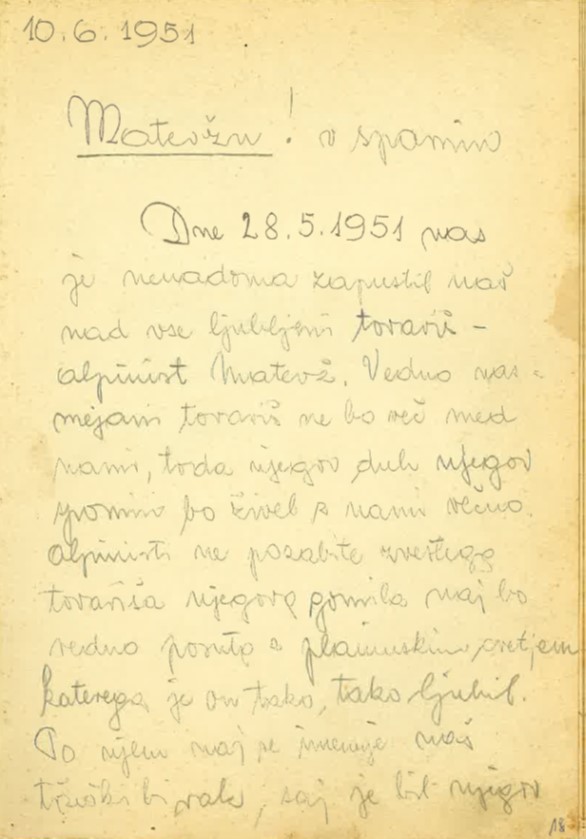 10.6.1951
Matevžu! v spomin
Dne 28.5.1951 nas
je nenadoma zapustil naš
nad vse ljubljeni tovariš -
alpinist Matevž. Vedno nas-
mejani tovariš ne bo več med
nami, toda njegov duh njegov
spomin bo živel z nami večno.
Alpinisti ne pozabite zvestega
tovariša njegova gomila naj bo
vedno posuta s planinskim cvetjem
katerega je on tako, tako ljubil.
Po njem naj se imenuje naš
tržiški bivak, saj je bil njegov
18